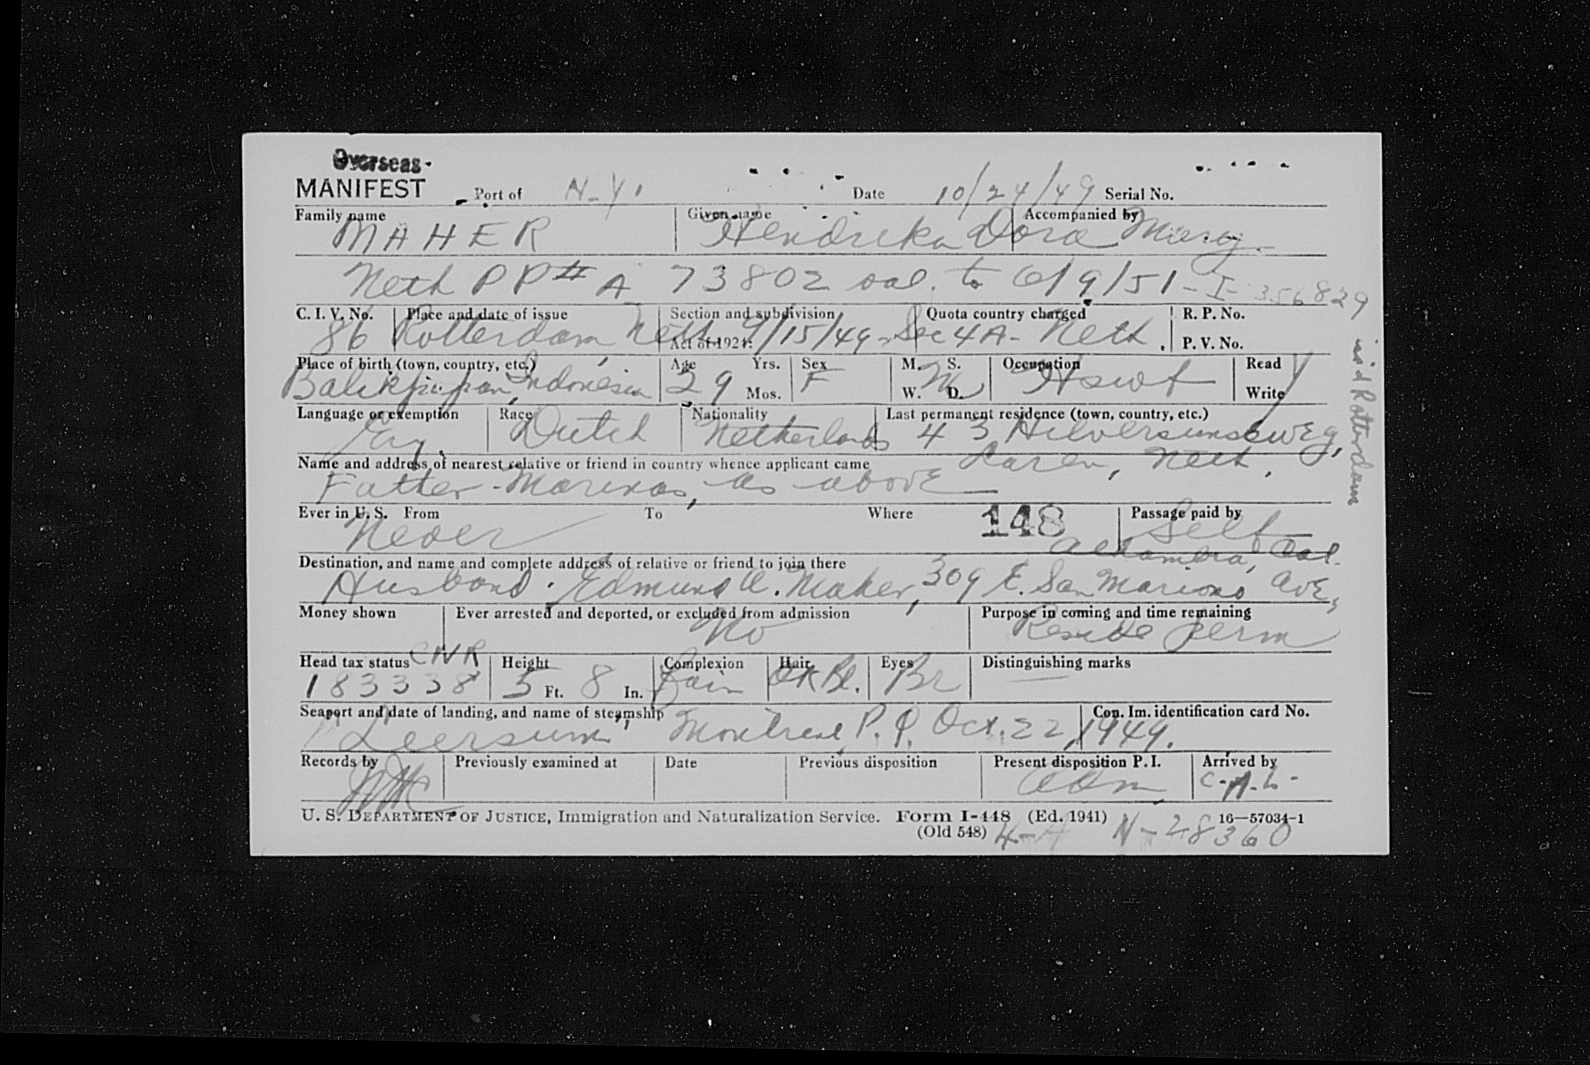 Overseas-
MANIFEST Port of N-Y. Date 10/24/49 Serial No.
Family name Given name Accompanied by
MAHER Hendrika Dora Mary.
Neth PP# A 73802 val. to 6/9/51 - I-356829
C. I. V. No. Place and date of issue Section and subdivision Quota country charged R. P. No.
86 Rotterdam Neth 9/15/49 - Sec 4A - Neth.
Act of 1924: P. V. No.
Place of birth (town, country, etc.) Age Yrs. Sex M. S. Occupation Read
Balikpapan, Indonesia 29 F M Hswf
Mos. W. D. Write
Language or exemption Race Nationality Last permanent residence (town, country, etc.)
Eng. Dutch Netherlands 43 Hilversumseweg,
Laren, Neth.
Name and address of nearest relative or friend in country whence applicant came
Father - Marinas, as above
Ever in U. S. From To Where 148 Passage paid by
Never Self
Alhambra, Cal.
Destination, and name and complete address of relative or friend to join there
Husband: Edmund A. Maher, 309 E. San Marcos Ave,
Money shown Ever arrested and deported, or excluded from admission Purpose in coming and time remaining
No Reside Perm
Head tax status CNR Height Complexion Hair Eyes Distinguishing marks
183338 5 Ft. 8 In. Fair DK Bl. Br
Seaport and date of landing, and name of steamship Can. Im. identification card No.
"Leersum" Montreal P.Q. Oct. 22, 1949.
Records by Previously examined at Date Previous disposition Present disposition P. I. Arrived by
Adm C-A-L-
U. S. DEPARTMENT OF JUSTICE, Immigration and Naturalization Service. Form I-448 (Ed. 1941) 16—57034-1
(Old 548) 4-A N-28360
Rotterdam